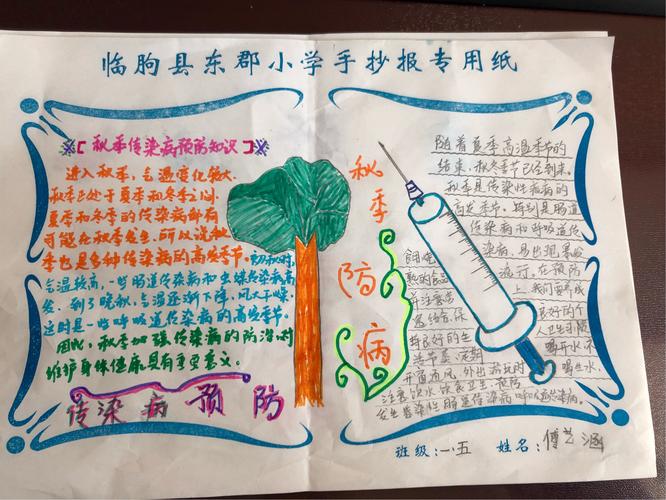 临朐县东郡小学手抄报专用纸
秋季传染病预防知识
进入秋季,气温变化较大,
秋季已处于夏季和冬季之间,
夏季和冬季的传染病都有
可能在秋季发生,所以说秋
季也是多种传染病的高发季节。初秋时,
气温较高,一些肠道传染病和虫媒传染病高
发,到了晚秋,气温逐渐下降,风大干燥,
这时是一些呼吸道传染病的高发季节。
因此,秋季加强传染病的防治,对
维护身体健康具有重要意义。
传染病预防
秋季防病
随着夏季高温季节的
结束,秋冬季节已经到来,
秋季是传染性疾病的
高发季节,特别是肠道
传染病和呼吸道传
染病,易出现暴发
流行,在预防
上我们要养成
良好的个
人卫生习惯
喝开水不
喝生水,
食用煮
熟的食品
并注意劳
逸结合,保
持良好的生
活节奏,定期
开通通风,外出游玩时
注意饮水饮食卫生,预防
发生感染性肠道传染病和呼吸道传染病。
班级:一.五 姓名:傅艺涵